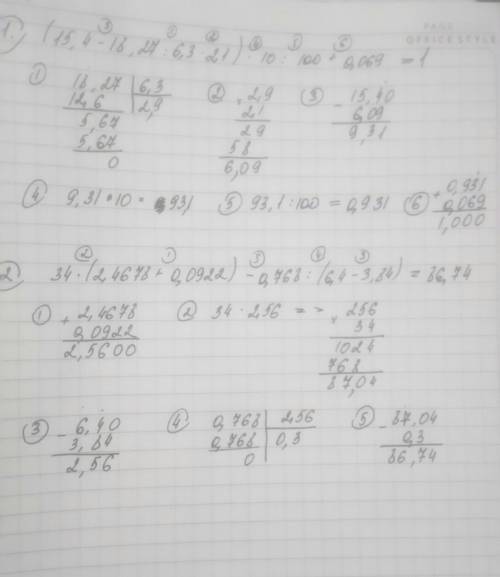 PAGE
OFFICE STYLE
③ ① ② ④ ⑤ ⑥
1. (15,4 - 18,27 : 6,3 · 2,1) · 10 : 100 + 0,069 = 1
① 18,27 | 6,3 ② × 2,9 ③ - 15,40
12,6 | 2,9 2,1 6,09
5,67 29 9,31
5,67 58
0 6,09
④ 9,31 · 10 = 931 ⑤ 93,1 : 100 = 0,931 ⑥ + 0,931
0,069
1,000
② ① ⑤ ④ ③
2. 34 · (2,4678 + 0,0922) - 0,768 : (6,4 - 3,84) = 86,74
① + 2,4678 ② 34 · 2,56 = > × 256
0,0922 34
2,5600 1024
768
87,04
③ - 6,40 ④ 0,768 | 2,56 ⑤ - 87,04
3,84 0,768 | 0,3 0,3
2,56 0 86,74